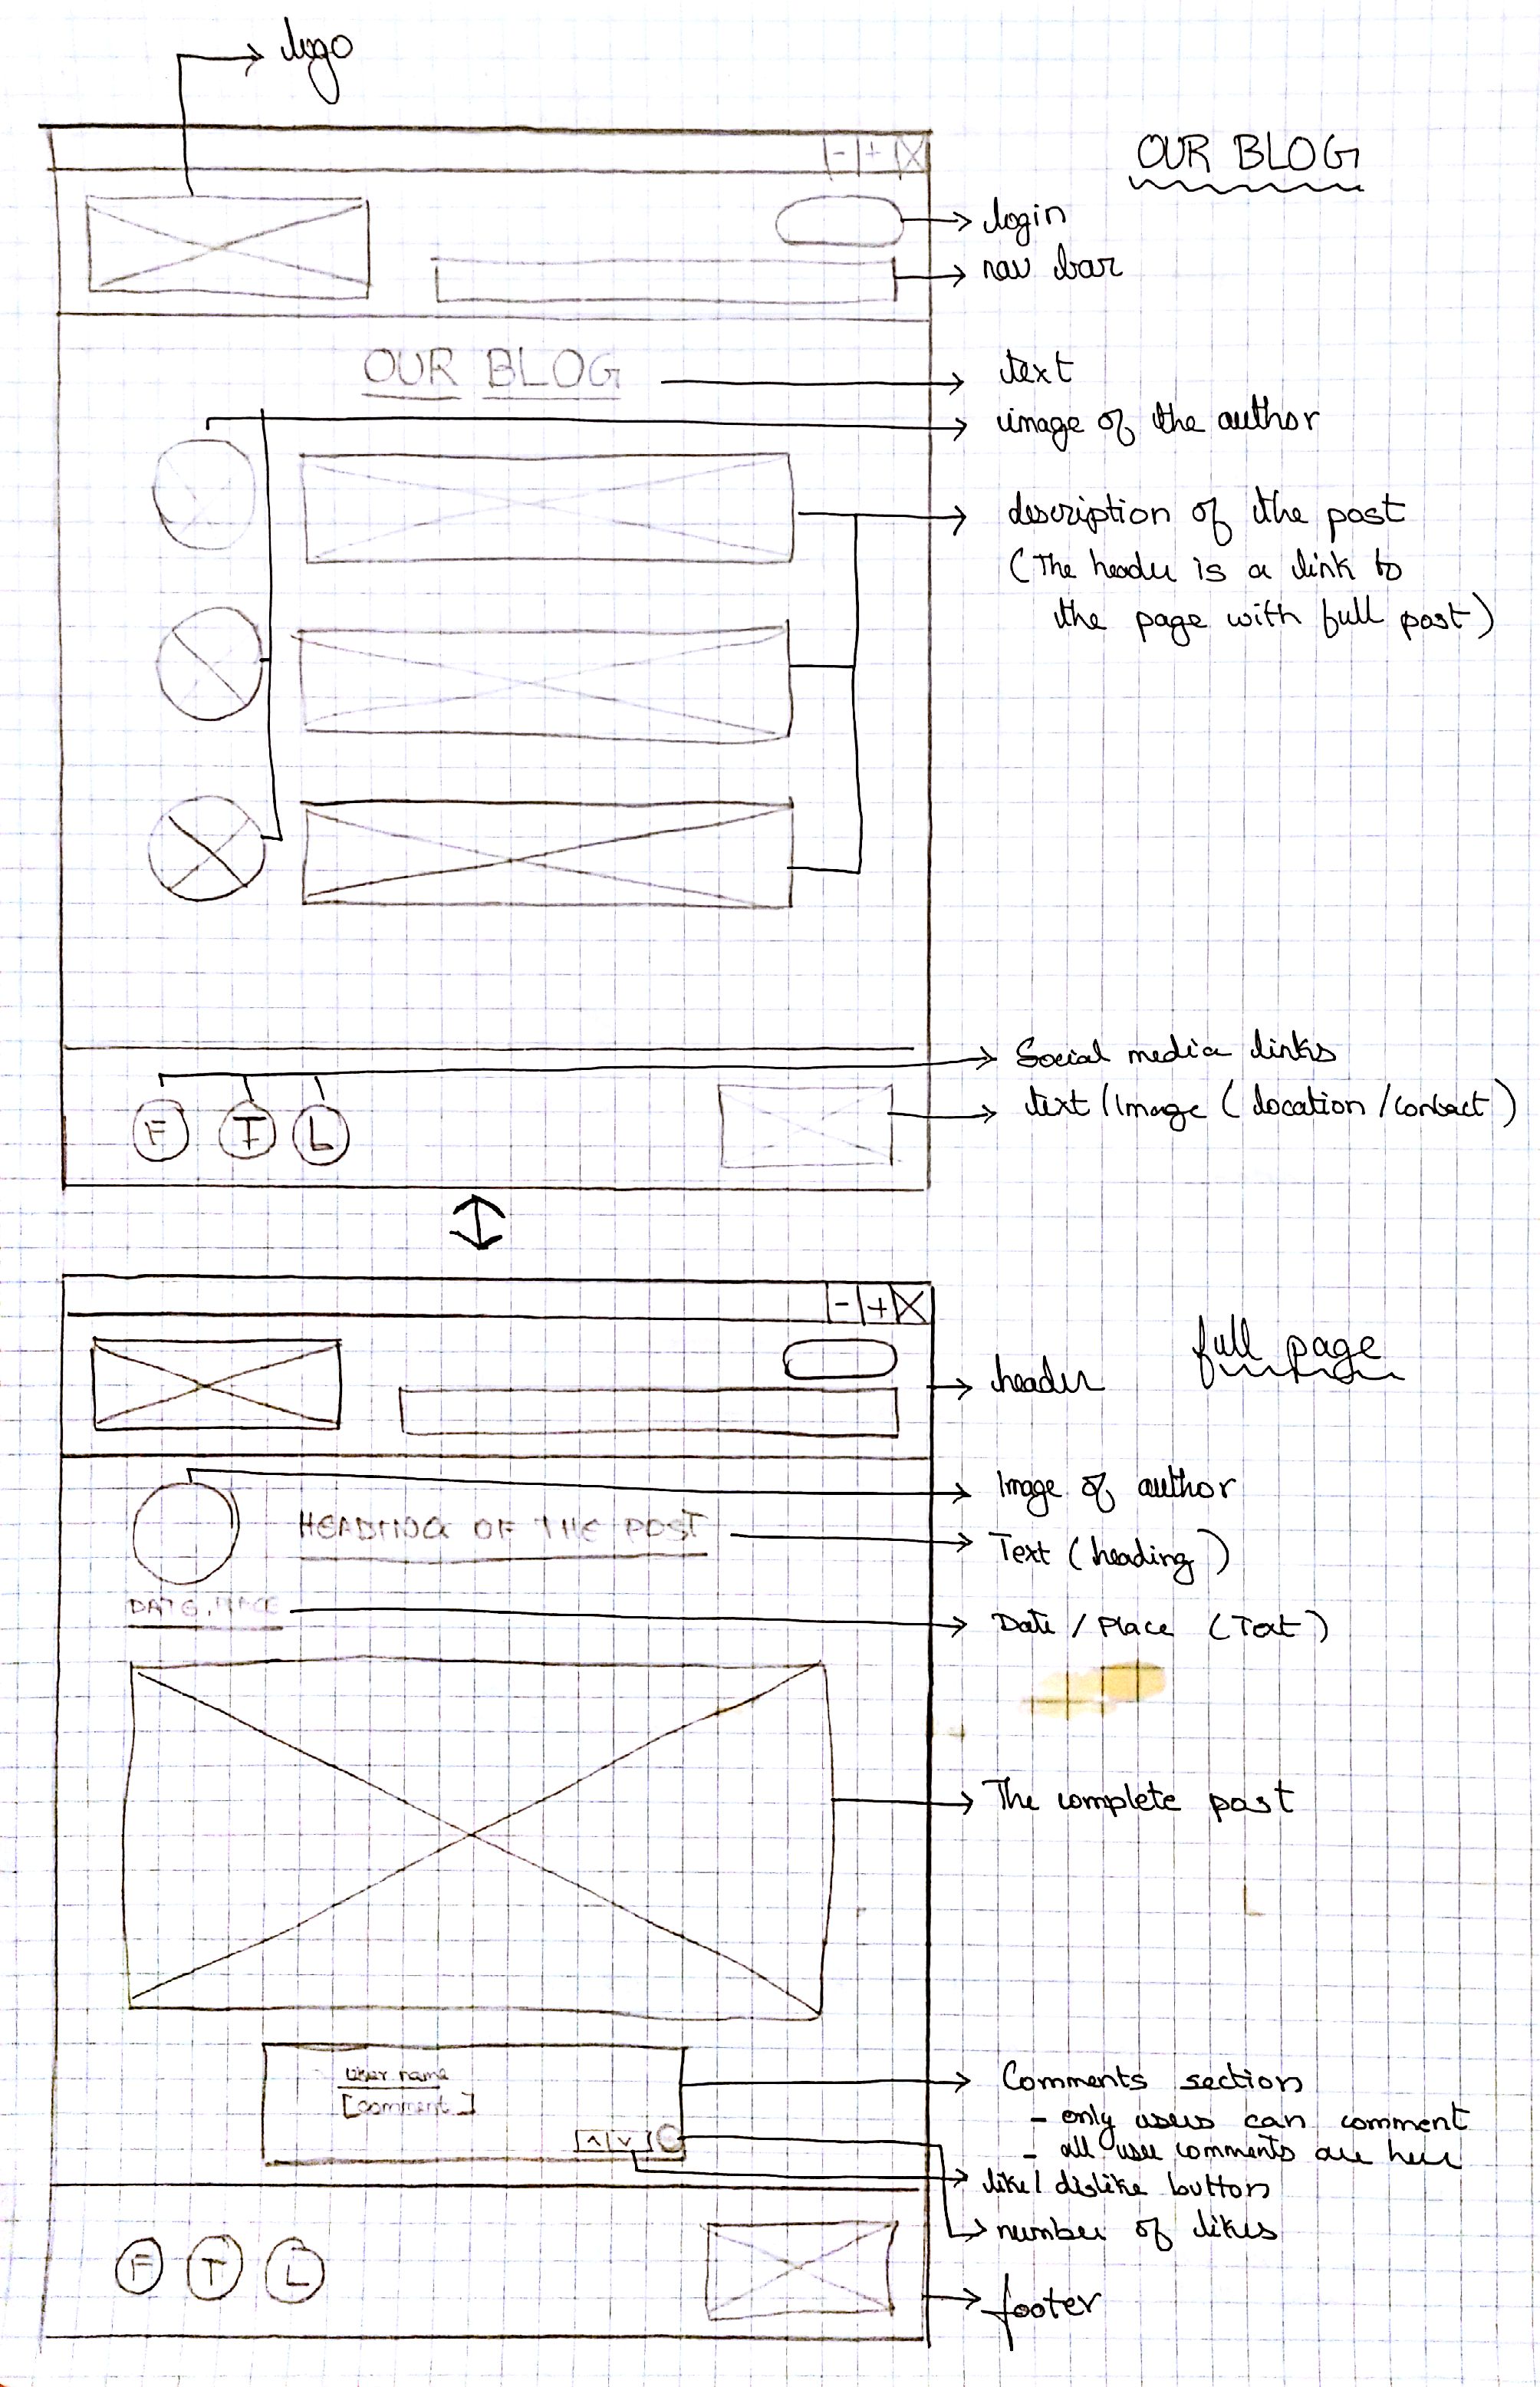 logo
- + X
OUR BLOG
login
nav bar
OUR BLOG
text
image of the author
description of the post
(The header is a link to
the page with full post)
Social media links
F T L
text/Image (location/contact)
- + X
full page
header
Image of author
HEADING OF THE POST
Text (heading)
DATE, PLACE
Date / Place (Text)
The complete post
User name
[comment]
Comments section
- only users can comment
- all user comments are here
like/dislike button
number of likes
F T L
footer